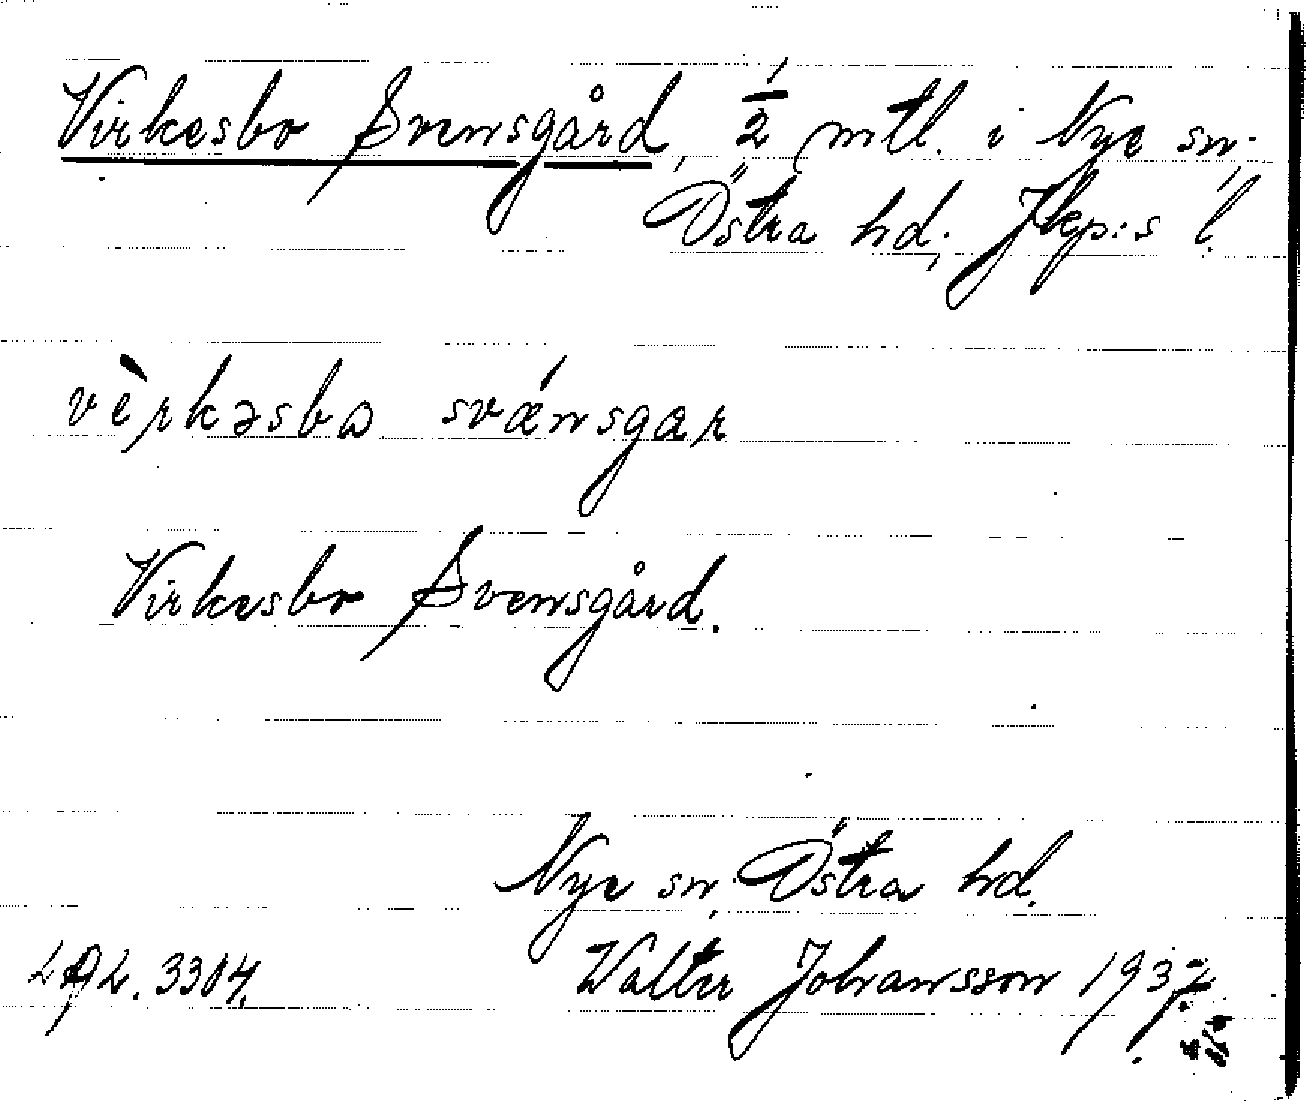 Virkesbo Svensgård, 1/2 mtl. i Nye sn.,
Östra hd., Jkp:s l.
vèrkəsbɷ svǽnsgar
Virkesbo Svensgård.
Nye sn, Östra hd.
292. 3304. Walter Johansson 1937